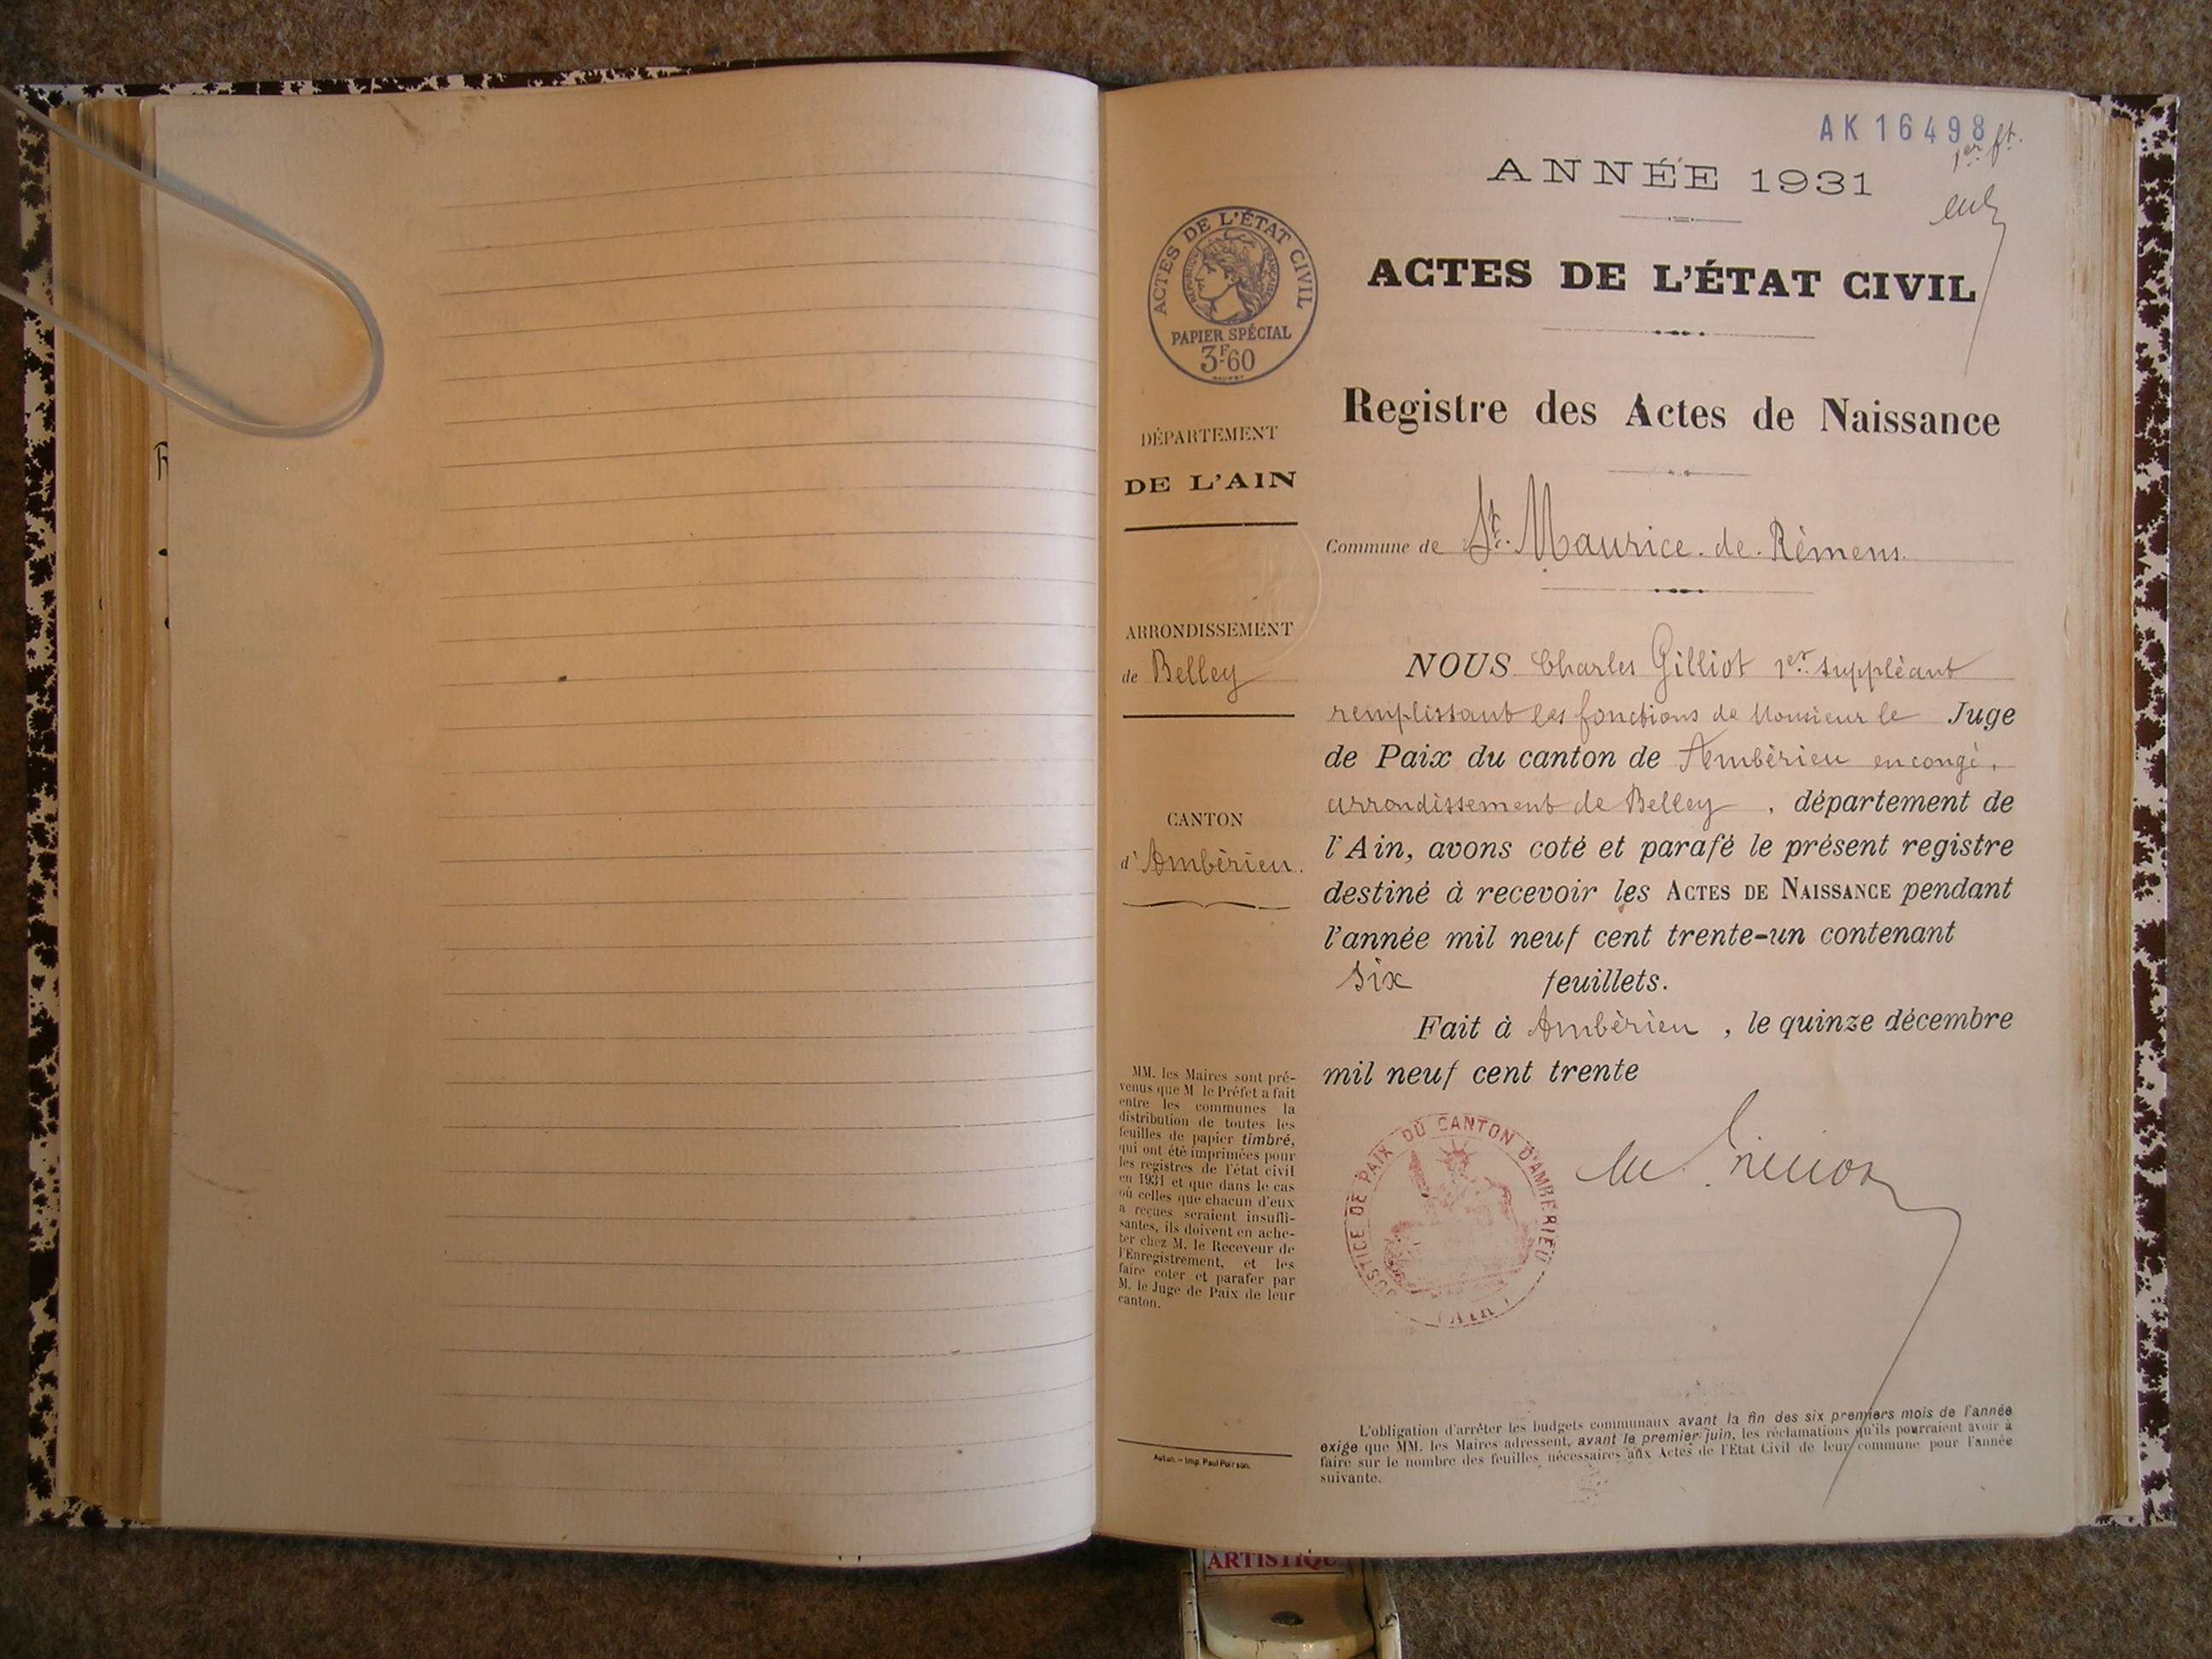 AK16498
1er ft.
ANNÉE 1931
ACTES DE L'ÉTAT CIVIL
RÉPUBLIQUE FRANÇAISE
PAPIER SPÉCIAL
3F60
ACTES DE L'ÉTAT CIVIL
Registre des Actes de Naissance
Commune de St. Maurice-de-Rémens.
DÉPARTEMENT
DE L'AIN
ARRONDISSEMENT
de Belley
CANTON
d'Ambérieu.
MM. les Maires sont pré-
venus que M le Préfet a fait
entre les communes la
distribution de toutes les
feuilles de papier timbré,
qui ont été imprimées pour
les registres de l'état civil
en 1931 et que dans le cas
où celles que chacun d'eux
a reçues seraient insuffi-
santes, ils doivent en ache-
ter chez M. le Receveur de
l'Enregistrement, et les
faire coter et parafer par
M. le Juge de Paix de leur
canton.
Autun. - Imp. Paul Poirson.
NOUS Charles Gilliot 1er suppléant
remplissant les fonctions de Monsieur le Juge
de Paix du canton de Ambérieu en congé,
arrondissement de Belley, département de
l'Ain, avons coté et parafé le présent registre
destiné à recevoir les ACTES DE NAISSANCE pendant
l'année mil neuf cent trente-un contenant
six feuillets.
Fait à Ambérieu, le quinze décembre
mil neuf cent trente
JUSTICE DE PAIX DU CANTON D'AMBERIEU
(AIN)
L'obligation d'arrêter les budgets communaux avant la fin des six premiers mois de l'année
exige que MM. les Maires adressent, avant le premier juin, les réclamations qu'ils pourraient avoir à
faire sur le nombre des feuilles nécessaires aux Actes de l'Etat Civil de leur commune pour l'année
suivante.
ARTISTIQUE